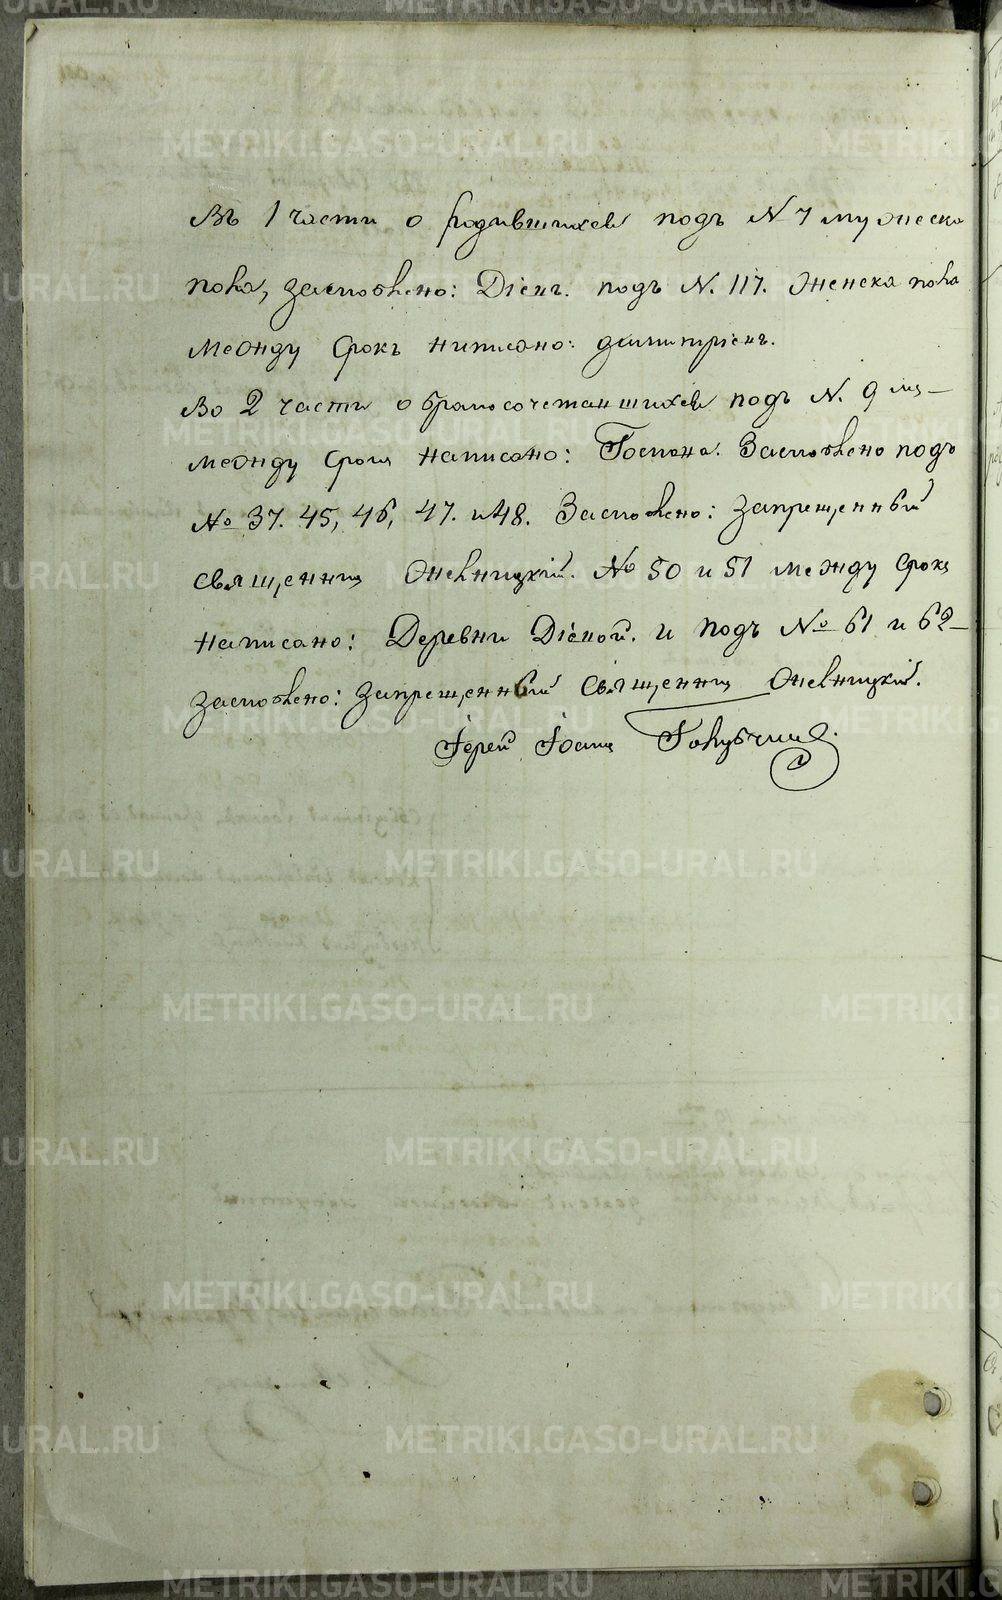 Въ 1 части о родившихся подъ N 7 мужеска
пола, заскоблено: Діенъ. подъ N. 117. Женска пола
между срокъ написано: димитріенъ.
Во 2 части о бракосочетавшихся подъ N. 9 мъ
между срокъ написано: Госпожа. Заскоблено подъ
№ 37. 45, 46, 47. и 48. Заскоблено: Запрещенный
священникъ Жевницкій. № 50 и 51 между срокъ
написано: Деревни Діевой. и подъ № 61 и 62
заскоблено: Запрещенный священникъ Жевницкій.
Іерей Іоаннъ
METRIKI.GASO-URAL.RU